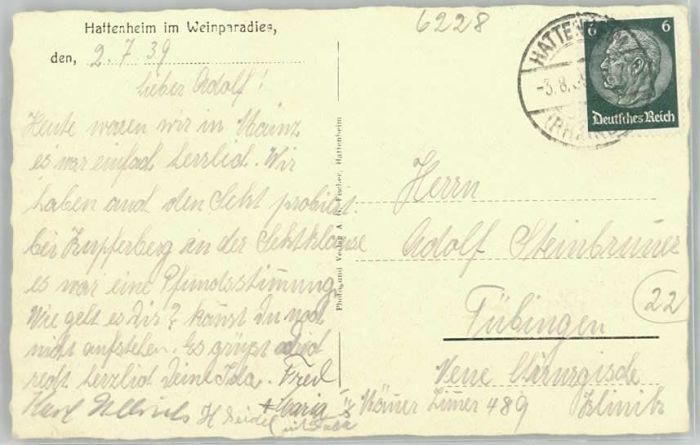 Hattenheim im Weinparadies,
den, 2.7.39
Lieber Adolf!
Heute waren wir in Mainz
es war einfach herrlich. Wir
haben auch den Sekt probiert
bei Kupferberg in der Sektklause
es war eine Pfundsstimmung
Wie geht es Dir? kannst Du noch
nicht aufstehen. Es grüsst Dich
recht herzlich Deine Isla. Fred
Karl Ullrich H Seidel + Maria
Photo und Verlag A. Fischer, Hattenheim
6228
HATTEN
-3.8.3
(RHEING
6 6
Deutsches Reich
Herrn
Adolf Steinbrunner
Tübingen
22
Neue Chirurgische
Klinik
Männer Zimmer 489